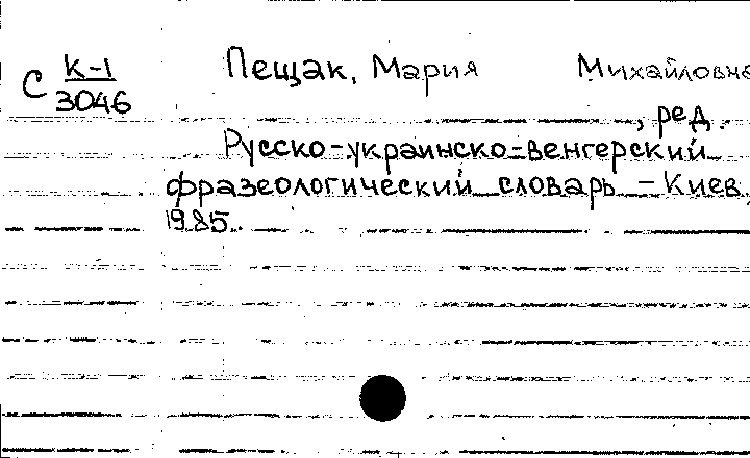 С К-1
3046
Пещак, Мария Михайловна
, ред.
Русско-украинско-венгерский
фразеологический словарь - Киев,
1985.